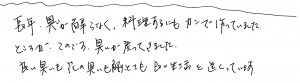 長年、臭いが解らなく、料理するにもカンで作っていました
ところが、このごろ、臭いが戻ってきました。
臭いも花の臭いも解とても良い生活を送っています。